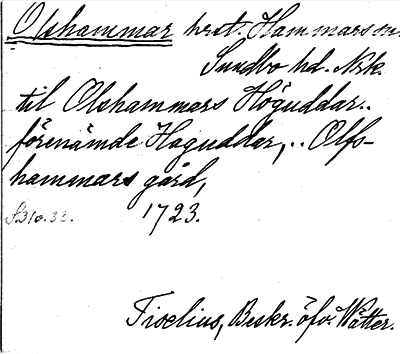 Olshammar hrst. Hammars sn.
Sundbo hd. Nrk.
til Olshammars Höguddar..
förenämde Haguddar,.. Olfs-
hammars gård,
1723.
Tiselius, Beskr. öfv. Wätter.